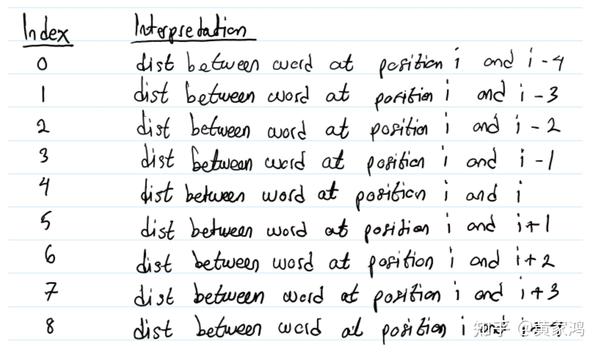 Index Interpretation
0 dist between word at position i and i-4
1 dist between word at position i and i-3
2 dist between word at position i and i-2
3 dist between word at position i and i-1
4 dist between word at position i and i
5 dist between word at position i and i+1
6 dist between word at position i and i+2
7 dist between word at position i and i+3
8 dist between word at position i
知乎 @袁家鸿